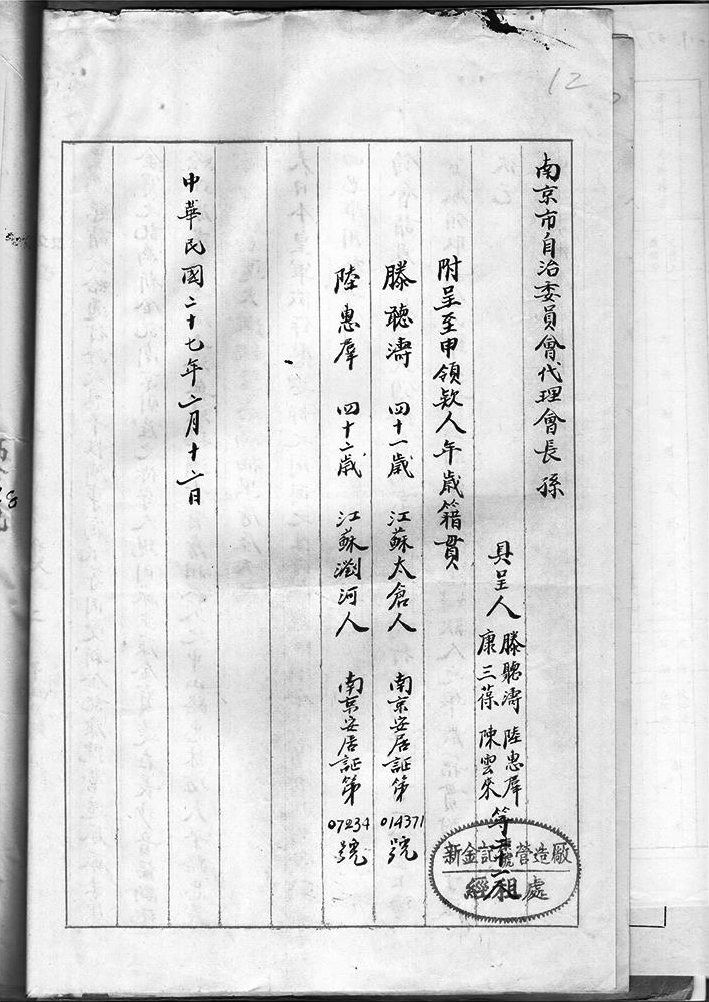 12
南京市自治委員會代理會長孫
具呈人 滕聰濤 陸惠羣
康三葆 陳雲來
等二十一組
附呈至申領欵人年歲籍貫
滕聰濤 四十一歲 江蘇太倉人 南京安居証第014371號
陸惠羣 四十二歲 江蘇瀏河人 南京安居証第07234號
中華民國二十七年二月十二日
新金記號營造廠
經處